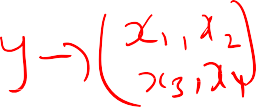 y → ( x₁, x₂
x₃, x₄ )